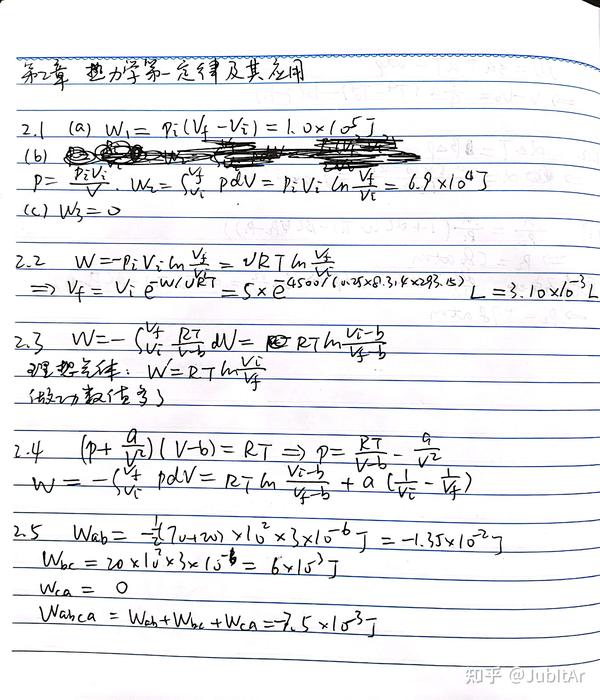 第2章 热力学第一定律及其应用
2.1 (a) W₁ = pᵢ(V_f − Vᵢ) = 1.0×10⁵J
(b)
p = pᵢVᵢ/V. W₂ = ∫_{Vᵢ}^{V_f} pdV = pᵢVᵢ ln V_f/Vᵢ = 6.9×10⁴J
(c) W₃ = 0
2.2 W = −pᵢVᵢ ln V_f/Vᵢ = νRT ln V_f/Vᵢ
⇒ V_f = Vᵢ e^{−W/νRT} = 5×e^{−4500/(0.25×8.314×293.15)} L = 3.10×10⁻³L
2.3 W = −∫_{Vᵢ}^{V_f} RT/(V−b) dV = RT ln (Vᵢ−b)/(V_f−b)
理想气体: W = RT ln Vᵢ/V_f
做功数值多了
2.4 (p + a/V²)(V−b) = RT ⇒ p = RT/(V−b) − a/V²
W = −∫_{Vᵢ}^{V_f} pdV = RT ln (Vᵢ−b)/(V_f−b) + a(1/Vᵢ − 1/V_f)
2.5 Wab = −½(70+20)×10²×3×10⁻⁶J = −1.35×10⁻²J
Wbc = 20×10²×3×10⁻⁶ = 6×10⁻³J
Wca = 0
Wabca = Wab + Wbc + Wca = −7.5×10⁻³J
知乎 @JubItAr